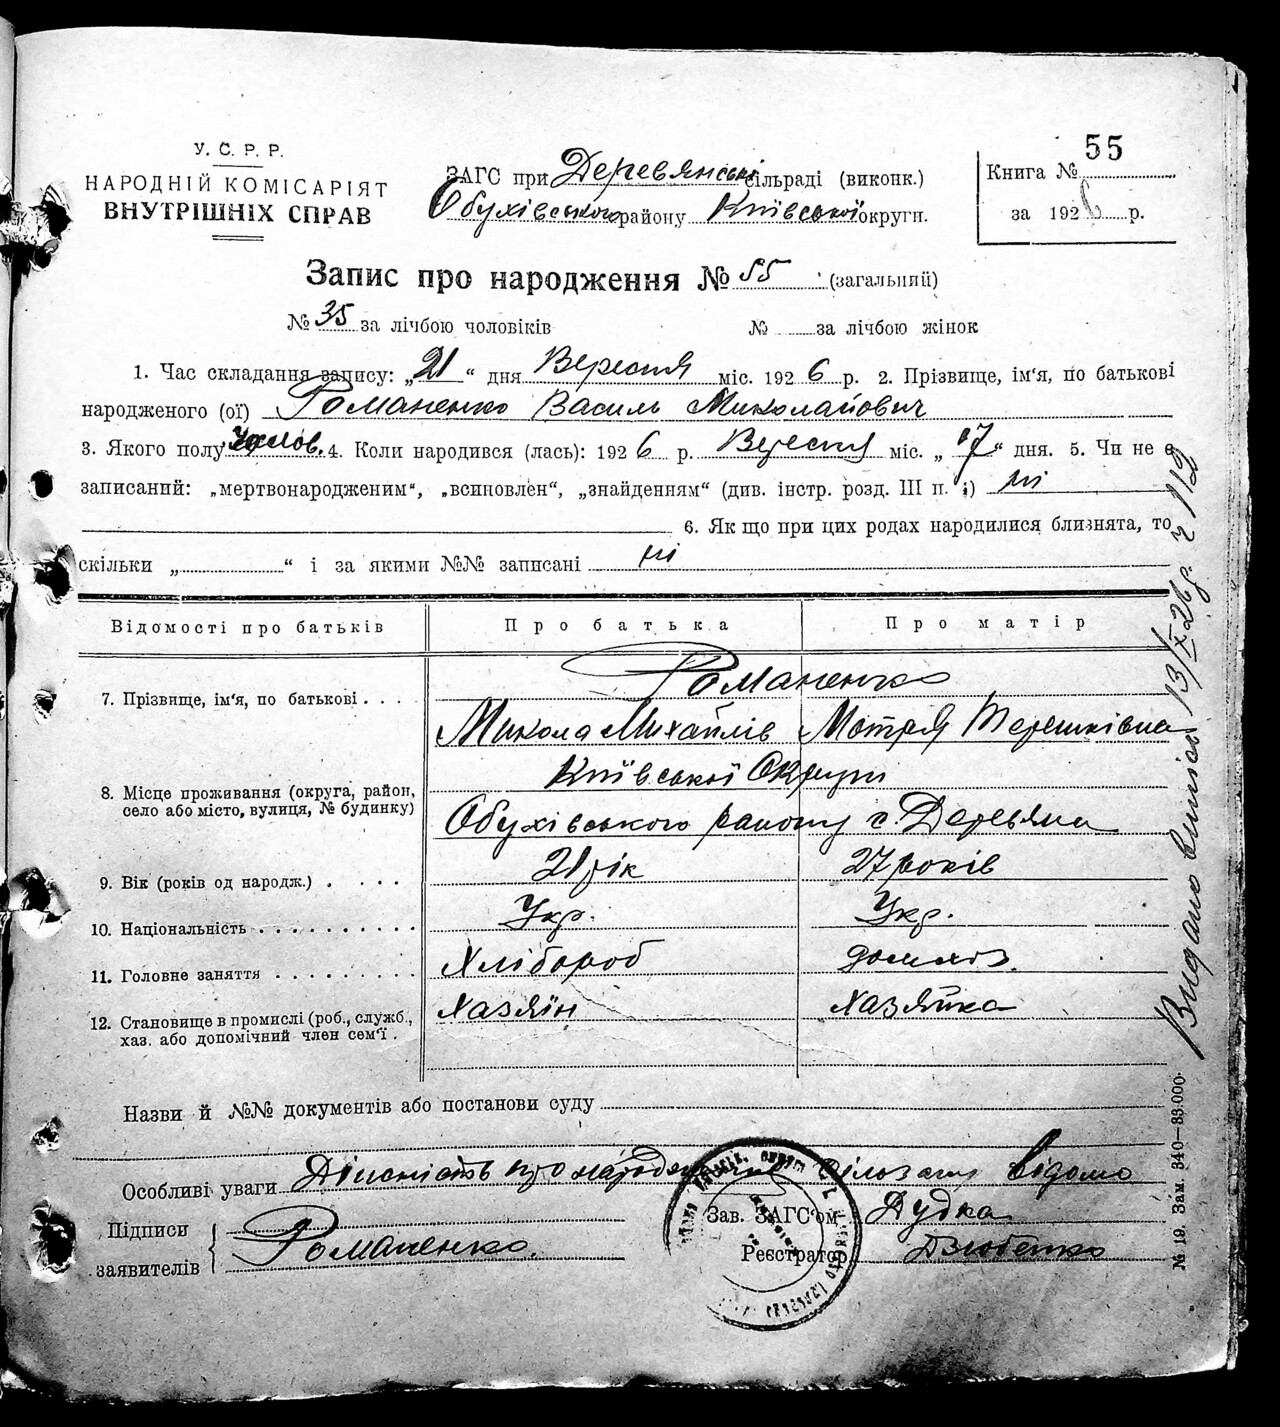 55
У. С. Р. Р.
НАРОДНІЙ КОМІСАРІЯТ
ВНУТРІШНІХ СПРАВ
ЗАГС при Деревянські сільраді (виконк.)
Обухівського району Київської округи.
Книга №
за 1926 р.
Запис про народження № 55 (загальний)
№ 35 за лічбою чоловіків № за лічбою жінок
1. Час складання запису: „21“ дня Вересня міс. 1926 р. 2. Прізвище, ім'я, по батькові
народженого (ої) Романенко Василь Миколайович
3. Якого полу Чолов. 4. Коли народився (лась): 1926 р. Вересня міс. „17“ дня. 5. Чи не є
записаний: „мертвонародженим“, „всиновлен“, „знайденням“ (див. інстр. розд. III п. ;) ні
6. Як що при цих родах народилися близнята, то
скільки „ “ і за якими №№ записані ні
Відомості про батьків Про батька Про матір
7. Прізвище, ім'я, по батькові . . . . Романенко
Микола Михайлів Мотря Терешківна
8. Місце проживання (округа, район, село або місто, вулиця, № будинку) Київської Округи
Обухівського району с. Деревяна
9. Вік (років од народж.) . . . . 21 рік 27 років
10. Національність . . . . . . . . . . Укр. Укр.
11. Головне заняття . . . . . . . . . Хлібороб домхоз.
12. Становище в промислі (роб., служб., хаз. або допомічний член сем'ї . Хазяїн Хазяйка
Назви й №№ документів або постанови суду
Особливі уваги Дійсність про народження сільзагсу відомо
Підписи
заявителів Романенко.
Зав. ЗАГС'ом Дудка
Реєстратор Дзюбенко
Видано виписі 13/IX 26 р. ч 112
№ 19. Зам. 340–33.000.